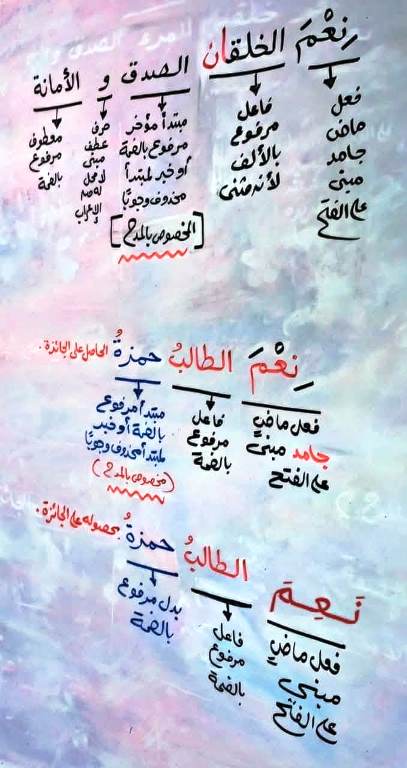 نِعْمَ الخلقان الصدق و الأمانة
فعل
ماضٍ
جامد
مبني
على الفتح
فاعل
مرفوع
بالألف
لأنه مثنى
مبتدأ مؤخر
مرفوع بالضمة
أو خبر لمبتدأ
محذوف وجوبًا
[المخصوص بالمدح]
حرف
عطف
مبني
لا محل
له من
الإعراب
معطوف
مرفوع
بالضمة
نِعْمَ الطالبُ حمزةُ الحاصل على الجائزة.
فعل ماضٍ
جامد مبني
على الفتح
فاعل
مرفوع
بالضمة
مبتدأ مرفوع
بالضمة أو خبر
لمبتدأ محذوف وجوبًا
(مخصوص بالمدح)
نَعِمَ الطالبُ حمزةُ بحصوله على الجائزة.
فعل ماضٍ
مبني
على الفتح
فاعل
مرفوع
بالضمة
بدل مرفوع
بالضمة